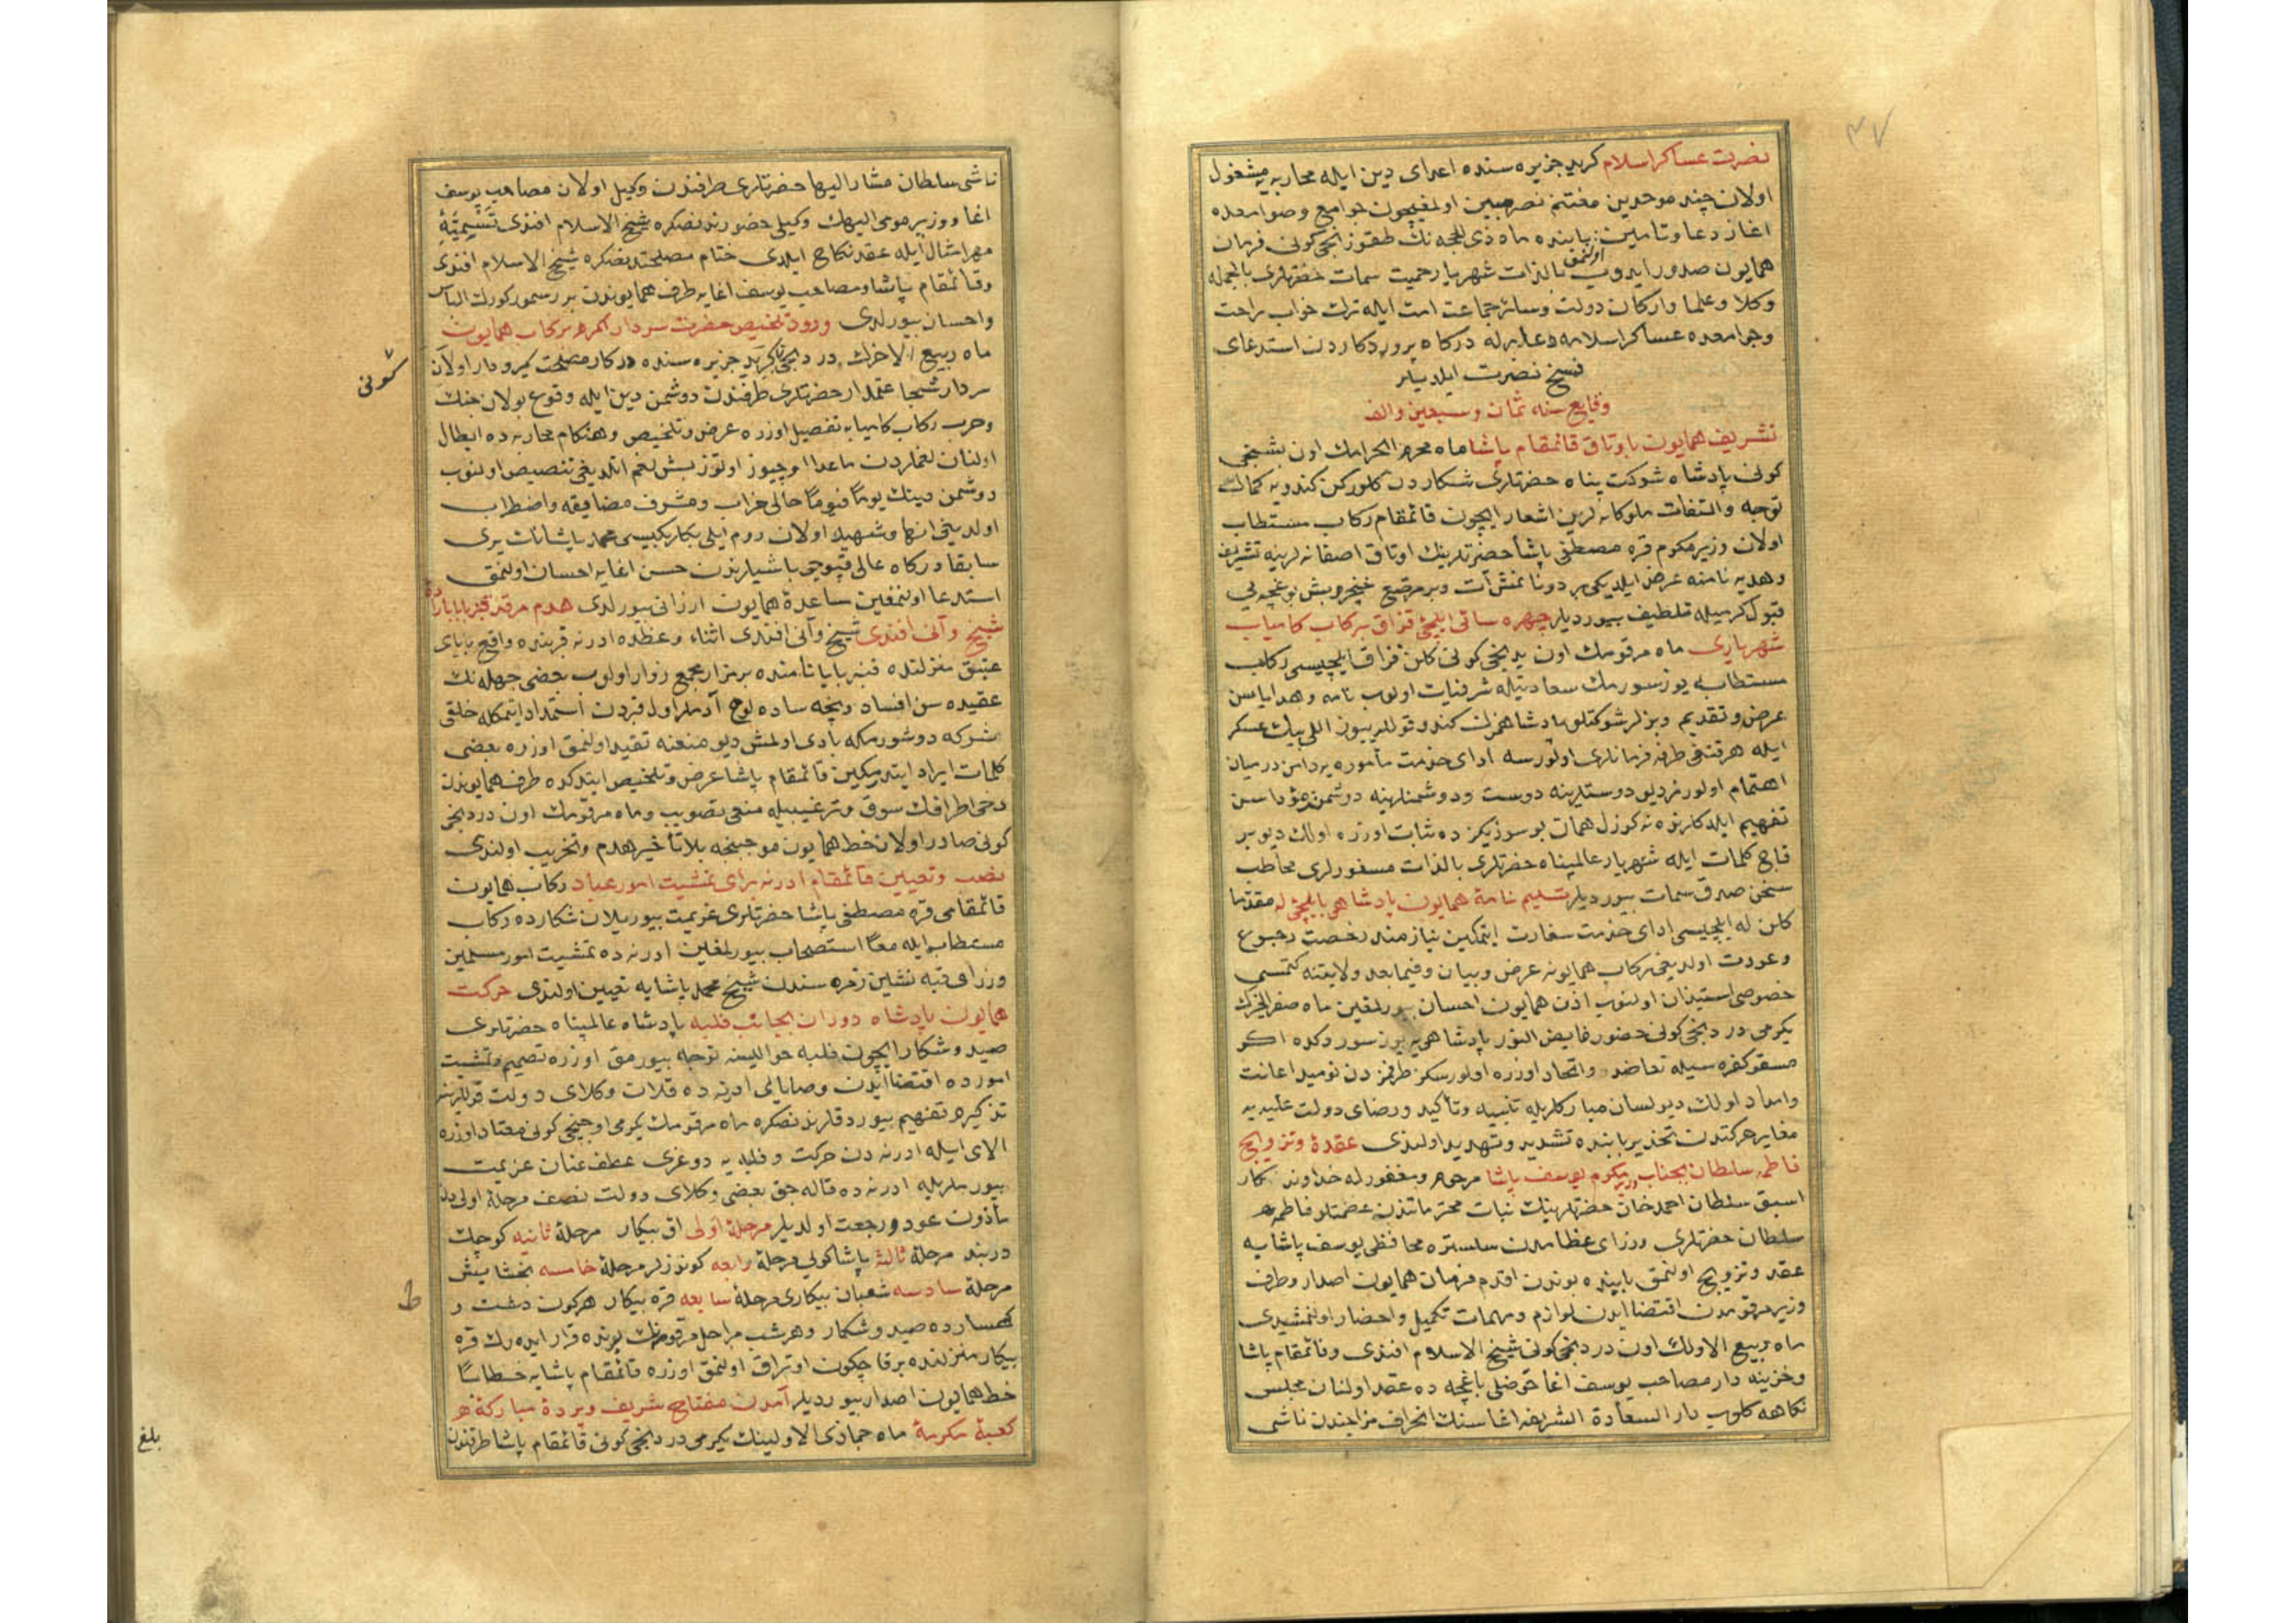 نصرت عساكر اسلام كريد جزيره سنده اعداى دين ايله محاربه يه مشغول
اولان چند موحدين مغتنم نصر مبين اولمغيچون جوامع وصوامعده
اغاز دعا وتامين بابنده ماه ذى الحجه نك طقوزنجى كونى فرمان
همايون صدور ايدوب اولنمق بالذات شهريار حميت سمات حضرتلرى بالجمله
وكلا وعلما واركان دولت وسائر جماعت امت ايله ترك خواب راحت
وجوامعده عساكر اسلامه دعا برله دركاه پروردكاردن استدعاى
فسيح نصرت ايلديلر
وقايع سنه ثمان وسبعين والف
تشريف همايون باوتاق قائمقام پاشا ماه محرم الحرامك اون بشنجى
كونى پادشاه شوكت پناه حضرتلرى شكاردن كلوركن كندويه كمال
توجه والتفات ملوكانه لرين اشعار ايچون قائمقام ركاب مستطاب
اولان وزير مكرم قره مصطفى پاشا حضرتلرينك اوتاق اصفانه لرينه تشريف
وهديه نامنه عرض ايلديكى بر دونانمش آت وبر مرصع خنجر وبش بوغچه يى
قبول كرميله تلطيف بيورديلر چهره سائى ايلچئ قزاق بركاب كامياب
شهريارى ماه مرقومك اون يدنجى كونى كلن قزاق ايلچيسى ركاب
مستطابه يوز سورمك سعادتيله شرفياب اولوب نامه وهداياسن
عرض وتقديم وبزلر شوكتلو پادشاهمزك كندو قوللرييوز اللى بيك عسكر
ايله هر قنغى طرفه فرمانلرى اولورسه اداى خدمت مأموره يه دامن درميان
اهتمام اولورز ديو دوستلرينه دوست ودوشمنلرينه دوشمنز مؤداسن
تفهيم ايلدكلرنده نه كوزل همان بو سوزيكز ده ثبات اوزره اولك ديو بر
قاچ كلمات ايله شهريار عالمپناه حضرتلرى بالذات مسفورلرى مخاطب
سخن صدق سمات بيورديلر تسليم نامۀ همايون پادشاهى بايلچئ له مقدما
كلن له ايلچيسى اداى خدمت سفارت ايتمكين نيازمند رخصت رجوع
وعودت اولديغى ركاب همايونه عرض وبيان وفيما بعد ولايتنه كتمسى
خصوصى استيذان اولنوب اذن همايون احسان بيورلمغين ماه صفر الخيرك
يكرمى دردنجى كونى حضور فايض النور پادشاهى يه يوز سوردكده اكر
مسقو كفره سيله تعاضد واتحاد اوزره اولورسكز طرفمزدن نوميد اعانت
وامداد اولك ديو لسان مباركلريله تنبيه وتأكيد ورضاى دولت عليه يه
مغاير حركتدن تحذير بابنده تشديد وتهديد اولندى عقدۀ وتزويج
فاطمه سلطان بجناب وزير مكرم يوسف پاشا مرحوم ومغفورله خداوندكار
اسبق سلطان احمد خان حضرتلرينك بنات محترماتندن عصمتلو فاطمه
سلطان حضرتلرى وزراى عظامدن سلستره محافظى يوسف پاشايه
عقد وتزويج اولنمق بابينده بوندن اقدم فرمان همايون اصدار وطرف
وزير مرقومدن اقتضا ايدن لوازم ومهمات تكميل واحضار اولنمشيدى
ماه ربيع الاولك اون دردنجى كونى شيخ الاسلام افندى وقائمقام پاشا
وخزينه دار مصاحب يوسف اغا حوضلى باغچه ده عقد اولنان مجلس
نكاحه كلوب دار السعادة الشريفه اغاسنك انحراف مزاجندن ناشى
ناشى سلطان مشار اليها حضرتلرى طرفندن وكيل اولان مصاحب يوسف
اغا ووزير مومى اليهك وكيلى حضورندنصكره شيخ الاسلام افندى تسميۀ
مهر امثال ايله عقد نكاح ايلدى ختام مصلحتدنصكره شيخ الاسلام افندى
وقائمقام پاشا ومصاحب يوسف اغايه طرف همايوندن برر سمور كورك الباس
واحسان بيورلدى ورود تلخيص حضرت سردار اكرم بركاب همايون
ماه ربيع الاخرك دردنجى كريد جزيره سنده دركار مصلحت كيرودار اولان
شكونى
سردار شجاعتمدار حضرتلرى طرفندن دوشمن دين ايله وقوع بولان جنك
وحرب ركاب كاميابه تفصيل اوزره عرض وتلخيص وهنكام محاربه ده ابطال
اولنان لغملردن ماعدا اوچيوز اوتوز بش لغم اتلديغى تنصيص اولنوب
دوشمن دينك يوما فيوما حالى خراب ومشرف مضايقه واضطراب
اولديغى انها وشهيد اولان روم ايلى بكلربكيسى محمد پاشانك يرى
سابقا دركاه عالى قپوجى باشيلرندن حسن اغايه احسان اولنمق
استدعا اولنمغين مساعدۀ همايون ارزانى بيورلدى هدم مرقد قنبر بابا باراده
شيخ وآنى افندى شيخ وآنى افندى اثناء وعظده ادرنه قربنده واقع باباى
عتيق منزلنده قنبر بابا نامنده بر مزار مجمع زوار اولوب بعضى جهله نك
عقيده سن افساد ونيجه ساده لوح آدملر اول قبردن استمداد ايتمكله خلقى
شركه دوشورمكه بادى اولمش ديو منعنه تقيد اولنمق اوزره بعضى
كلمات ايراد ايتديركين قائمقام پاشا عرض وتلخيص ايتدكده طرف همايوندن
دخى اطرافك سوق وترغيبيله منعى تصويب وماه مرقومك اون دردنجى
كونى صادر اولان خط همايون موجبنجه بلا تأخير هدم وتخريب اولندى
نصب وتعيين قائمقام ادرنه براى تمشيت امور عباد ركاب همايون
قائمقامى قره مصطفى پاشا حضرتلرى عزيمت بيوريلان شكارده ركاب
مستطاب ايله معا استصحاب بيورلمغين ادرنه ده تمشيت امور مسلمين
وزراى قبه نشين زمره سندن شيخ محمد پاشايه تعيين اولندى حركت
همايون پادشاه دوران بجانب فلبه پادشاه عالمپناه حضرتلرى
صيد وشكار ايچون فلبه حواليسنه توجه بيورمق اوزره تصميم وتمشيت
امورده اقتضا ايدن وصايايى ادرنه ده قلان وكلاى دولت قوللرينه
تذكير وتفهيم بيوردقلرندنصكره ماه مرقومك يكرمى اوچنجى كونى معتاد اوزره
الاى ايله ادرنه دن حركت وفلبه يه دوغرى عطف عنان عزيمت
بيورملريله ادرنه ده قاله جق بعضى وكلاى دولت نصف مرحلۀ اولىدن
مأذون عود ورجعت اولديلر مرحلۀ اولى اق بيكار مرحلۀ ثانيه كوچك
دربند مرحلۀ ثالثه پاشا كويى مرحلۀ رابعه كوندزلر مرحلۀ خامسه بخشايش
مرحلۀ سادسه شعبان بيكارى مرحلۀ سابعه قره بيكار هركون دشت و
ط
كهسارده صيد وشكار وهر شب مراحل مرقومه نك برنده قرار ايده رك قره
بيكار منزلنده برقاچكون اوتراق اولنمق اوزره قائمقام پاشايه خطابا
خط همايون اصدار بيورديلر آمدن مفتاح شريف وپردۀ مباركۀ
كعبۀ مكرمه ماه جماذى الاولينك يكرمى دردنجى كونى قائمقام پاشا طرفندن
بلغ